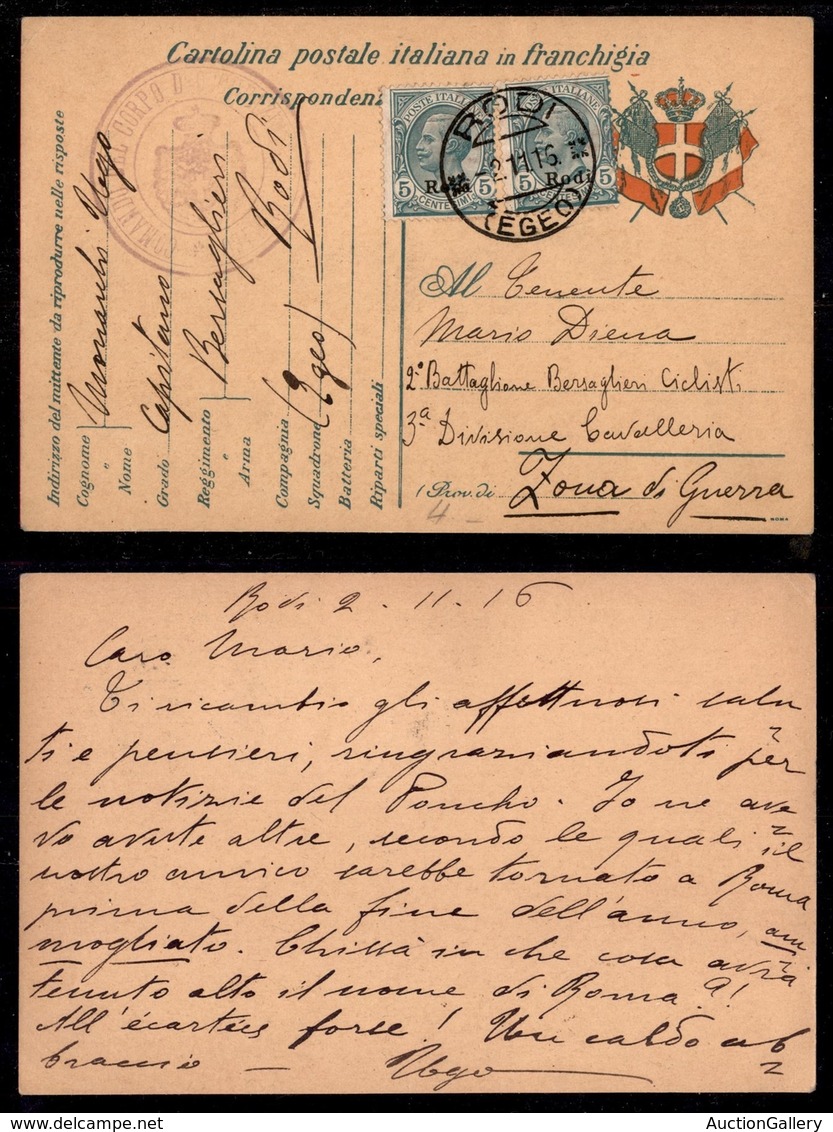 Cartolina postale italiana in franchigia
Corrispondenz
POSTE ITALIANE
5 CENTESIMI 5
Rodi
POSTE ITALIANE
5 CENTESIMI 5
Rodi
RODI
2.11.16.
(EGEO)
COMANDO DEL CORPO D
Indirizzo del mittente da riprodurre nelle risposte
Cognome
" Nome Ugo
Grado Capitano
Reggimento
" Arma Bersaglieri
Compagnia
Squadrone (Egeo) Rodi
Batteria
Riparti speciali
Al Tenente
Mario Diena
2° Battaglione Bersaglieri Ciclisti
3ª Divisione Cavalleria
(Prov. di Zona di Guerra
4 -
ROMA
Rodi 2 - 11 - 16
Caro Mario,
Ti ricambio gli affettuosi salu
ti e pensieri, ringraziandoti per
le notizie del Poncho. Io ne ave
vo avute altre, secondo le quali il
nostro amico sarebbe tornato a Roma
prima della fine dell'anno, am
mogliato. Chissà in che cosa avrà
tenuto alto il nome di Roma?!
All'écartées forse! Un caldo ab
braccio - Ugo
AuctionGallery